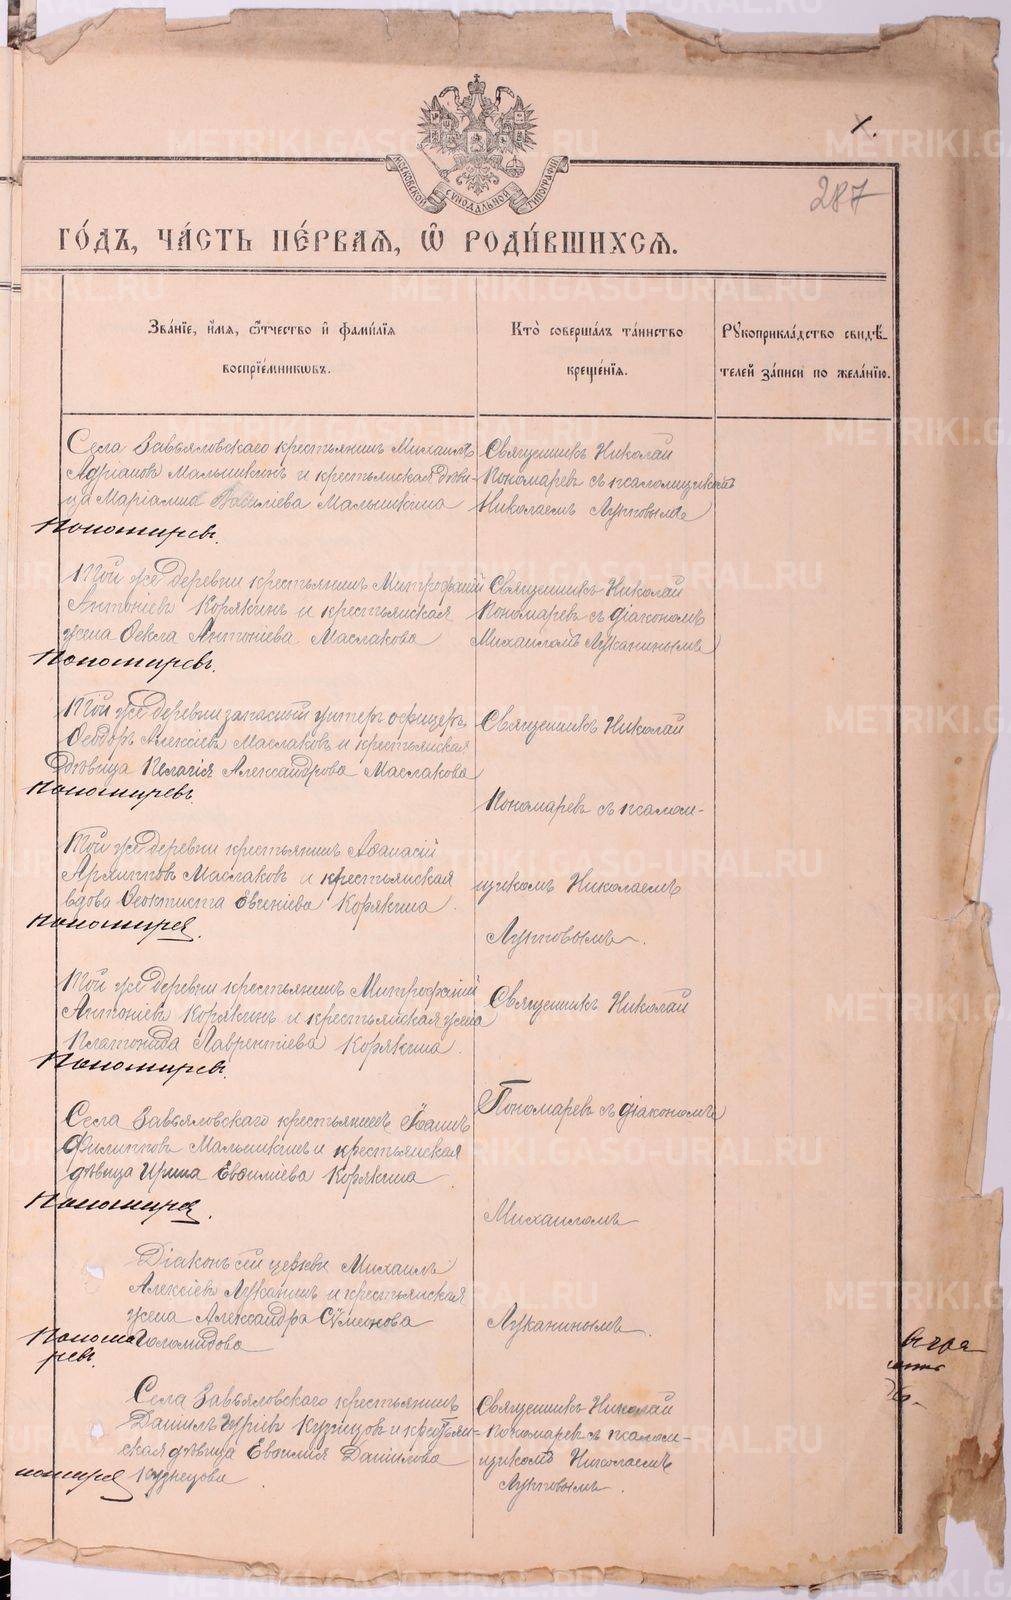 х.
287
МОСКОВСКОЙ СѴНОДАЛЬНОЙ ТИПОГРАФІИ
ГО́ДЪ, ЧА́СТЬ ПЕ́РВАѦ, Ѡ҆ РОДИ́ВШИХСѦ.
Зва́нїе, и҆́мѧ, ѻ҆́тчество и҆ фами́лїѧ
воспрїе́мникѡвъ.
Кто̀ соверша́лъ та́инство
креще́нїѧ.
Рꙋкоприкла́дство свидѣ́-
телей за́писи по жела́нїю.
Села Завьяловскаго крестьянинъ Михаилъ
Адріановъ Малышкинъ и крестьянская дѣви-
ца Маріамна Малышкина
Пономаревъ.
Священникъ Николай
Пономаревъ съ псаломщикомъ
Николаемъ Луповымъ
Той же деревни крестьянинъ Митрофаній
Антоніевъ Корякинъ и крестьянская
жена Ѳекла Антоніева Маслакова
Пономаревъ.
Священникъ Николай
Пономаревъ съ діакономъ
Михаиломъ Луканинымъ
Той же деревни запасный унтеръ офицеръ
Ѳеодоръ Алексіевъ Маслаковъ и крестьянская
дѣвица Пелагія Александрова Маслакова
Пономаревъ
Священникъ Николай
Пономаревъ съ псалом-
Той же деревни крестьянинъ Аѳанасій
Архипповъ Маслаковъ и крестьянская
вдова Ѳеоктиста Евгеніева Корякина.
Пономарев.
щикомъ Николаемъ
Луповымъ.
Той же деревни крестьянинъ Митрофаній
Антоніевъ Корякинъ и крестьянская жена
Платонида Лаврентіева Корякина.
Пономаревъ.
Священникъ Николай
Пономаревъ съ діакономъ
Села Завьяловскаго крестьянинъ Іоаннъ
Филипповъ Малышкинъ и крестьянская
дѣвица Ирина Евѳиміева Корякина
Пономарев.
Михаиломъ
Діаконъ сей церкви Михаилъ
Алексіевъ Луканинъ и крестьянская
жена Александра Сѵмеонова
Голомидова
Понома
ревъ.
Луканинымъ.
Села Завьяловскаго крестьянинъ
Даніилъ Куріевъ Кузнецовъ и крестьян-
ская дѣвица Евѳимія Даніилова
Кузнецова
номарев
Священникъ Николай
Пономаревъ съ псалом-
щикомъ Николаемъ
Луповымъ.
METRIKI.GASO-URAL.RU